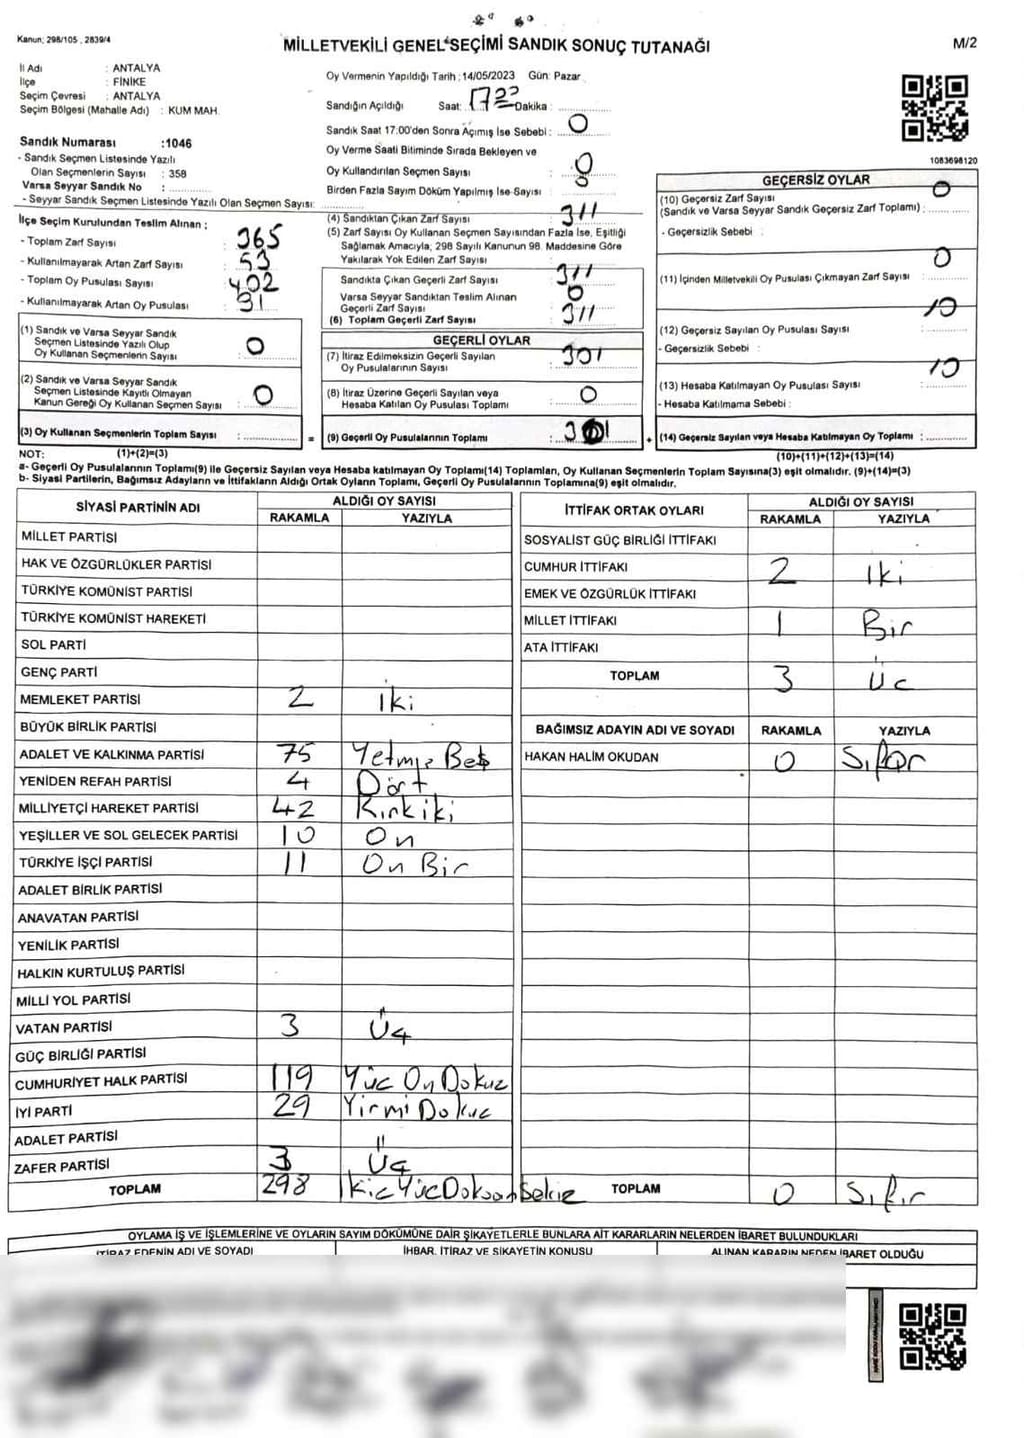 Kanun; 298/105 , 2839/4
MİLLETVEKİLİ GENEL SEÇİMİ SANDIK SONUÇ TUTANAĞI
M/2
İl Adı : ANTALYA
İlçe : FİNİKE
Seçim Çevresi : ANTALYA
Seçim Bölgesi (Mahalle Adı) : KUM MAH.
Sandık Numarası :1046
- Sandık Seçmen Listesinde Yazılı
Olan Seçmenlerin Sayısı : 358
Varsa Seyyar Sandık No :
- Seyyar Sandık Seçmen Listesinde Yazılı Olan Seçmen Sayısı:
Oy Vermenin Yapıldığı Tarih :14/05/2023 Gün: Pazar
Sandığın Açıldığı Saat: 17 Dakika :
Sandık Saat 17:00'den Sonra Açımış İse Sebebi : 0
Oy Verme Saati Bitiminde Sırada Bekleyen ve
Oy Kullandırılan Seçmen Sayısı : 0
Birden Fazla Sayım Döküm Yapılmış İse Sayısı :
1083698120
İlçe Seçim Kurulundan Teslim Alınan ;
- Toplam Zarf Sayısı : 365
- Kullanılmayarak Artan Zarf Sayısı : 53
- Toplam Oy Pusulası Sayısı : 402
- Kullanılmayarak Artan Oy Pusulası : 91
(1) Sandık ve Varsa Seyyar Sandık
Seçmen Listesinde Yazılı Olup
Oy Kullanan Seçmenlerin Sayısı : 0
(2) Sandık ve Varsa Seyyar Sandık
Seçmen Listesinde Kayıtlı Olmayan
Kanun Gereği Oy Kullanan Seçmen Sayısı : 0
(3) Oy Kullanan Seçmenlerin Toplam Sayısı :
(4) Sandıktan Çıkan Zarf Sayısı : 311
(5) Zarf Sayısı Oy Kullanan Seçmen Sayısından Fazla İse, Eşitliği
Sağlamak Amacıyla; 298 Sayılı Kanunun 98. Maddesine Göre
Yakılarak Yok Edilen Zarf Sayısı :
Sandıkta Çıkan Geçerli Zarf Sayısı : 311
Varsa Seyyar Sandıktan Teslim Alınan
Geçerli Zarf Sayısı : 0
(6) Toplam Geçerli Zarf Sayısı : 311
GEÇERLİ OYLAR
(7) İtiraz Edilmeksizin Geçerli Sayılan
Oy Pusulalarının Sayısı : 301
(8) İtiraz Üzerine Geçerli Sayılan veya
Hesaba Katılan Oy Pusulası Toplamı : 0
= (9) Geçerli Oy Pusulalarının Toplamı : 301
GEÇERSİZ OYLAR
(10) Geçersiz Zarf Sayısı 0
(Sandık ve Varsa Seyyar Sandık Geçersiz Zarf Toplamı) :
- Geçersizlik Sebebi :
(11) İçinden Milletvekili Oy Pusulası Çıkmayan Zarf Sayısı : 0
(12) Geçersiz Sayılan Oy Pusulası Sayısı : 10
- Geçersizlik Sebebi :
(13) Hesaba Katılmayan Oy Pusulası Sayısı : 10
- Hesaba Katılmama Sebebi :
+ (14) Geçersiz Sayılan veya Hesaba Katılmayan Oy Toplamı :
NOT: (1)+(2)=(3)
(10)+(11)+(12)+(13)=(14)
a- Geçerli Oy Pusulalarının Toplamı(9) ile Geçersiz Sayılan veya Hesaba katılmayan Oy Toplamı(14) Toplamları, Oy Kullanan Seçmenlerin Toplam Sayısına(3) eşit olmalıdır. (9)+(14)=(3)
b- Siyasi Partilerin, Bağımsız Adayların ve İttifakların Aldığı Ortak Oyların Toplamı, Geçerli Oy Pusulalarının Toplamına(9) eşit olmalıdır.
SİYASİ PARTİNİN ADI ALDIĞI OY SAYISI
RAKAMLA YAZIYLA
MİLLET PARTİSİ
HAK VE ÖZGÜRLÜKLER PARTİSİ
TÜRKİYE KOMÜNİST PARTİSİ
TÜRKİYE KOMÜNİST HAREKETİ
SOL PARTİ
GENÇ PARTİ
MEMLEKET PARTİSİ 2 iki
BÜYÜK BİRLİK PARTİSİ
ADALET VE KALKINMA PARTİSİ 75 Yetmiş Beş
YENİDEN REFAH PARTİSİ 4 Dört
MİLLİYETÇİ HAREKET PARTİSİ 42 Kırkiki
YEŞİLLER VE SOL GELECEK PARTİSİ 10 On
TÜRKİYE İŞÇİ PARTİSİ 11 On Bir
ADALET BİRLİK PARTİSİ
ANAVATAN PARTİSİ
YENİLİK PARTİSİ
HALKIN KURTULUŞ PARTİSİ
MİLLİ YOL PARTİSİ
VATAN PARTİSİ 3 Üç
GÜÇ BİRLİĞİ PARTİSİ
CUMHURİYET HALK PARTİSİ 119 Yüz On Dokuz
İYİ PARTİ 29 Yirmi Dokuz
ADALET PARTİSİ
ZAFER PARTİSİ 3 Üç
TOPLAM 298 İkiz Yüz Doksan Sekiz
İTTİFAK ORTAK OYLARI ALDIĞI OY SAYISI
RAKAMLA YAZIYLA
SOSYALİST GÜÇ BİRLİĞİ İTTİFAKI
CUMHUR İTTİFAKI 2 İki
EMEK VE ÖZGÜRLÜK İTTİFAKI
MİLLET İTTİFAKI 1 Bir
ATA İTTİFAKI
TOPLAM 3 Üc
BAĞIMSIZ ADAYIN ADI VE SOYADI RAKAMLA YAZIYLA
HAKAN HALİM OKUDAN 0 Sıfır
TOPLAM 0 Sıfır
OYLAMA İŞ VE İŞLEMLERİNE VE OYLARIN SAYIM DÖKÜMÜNE DAİR ŞİKAYETLERLE BUNLARA AİT KARARLARIN NELERDEN İBARET BULUNDUKLARI
İTİRAZ EDENİN ADI VE SOYADI İHBAR, İTİRAZ VE ŞİKAYETİN KONUSU ALINAN KARARIN NEDEN İBARET OLDUĞU